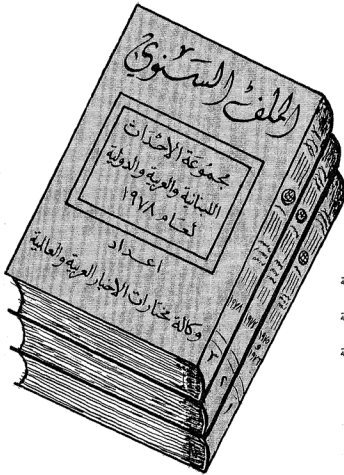 الملف السنوي
مجموعة الأحداث
اللبنانية والعربية والدولية
لعام ١٩٧٨
اعداد
وكالة مختارات الاخبار العربية والعالمية
٣
٢
١